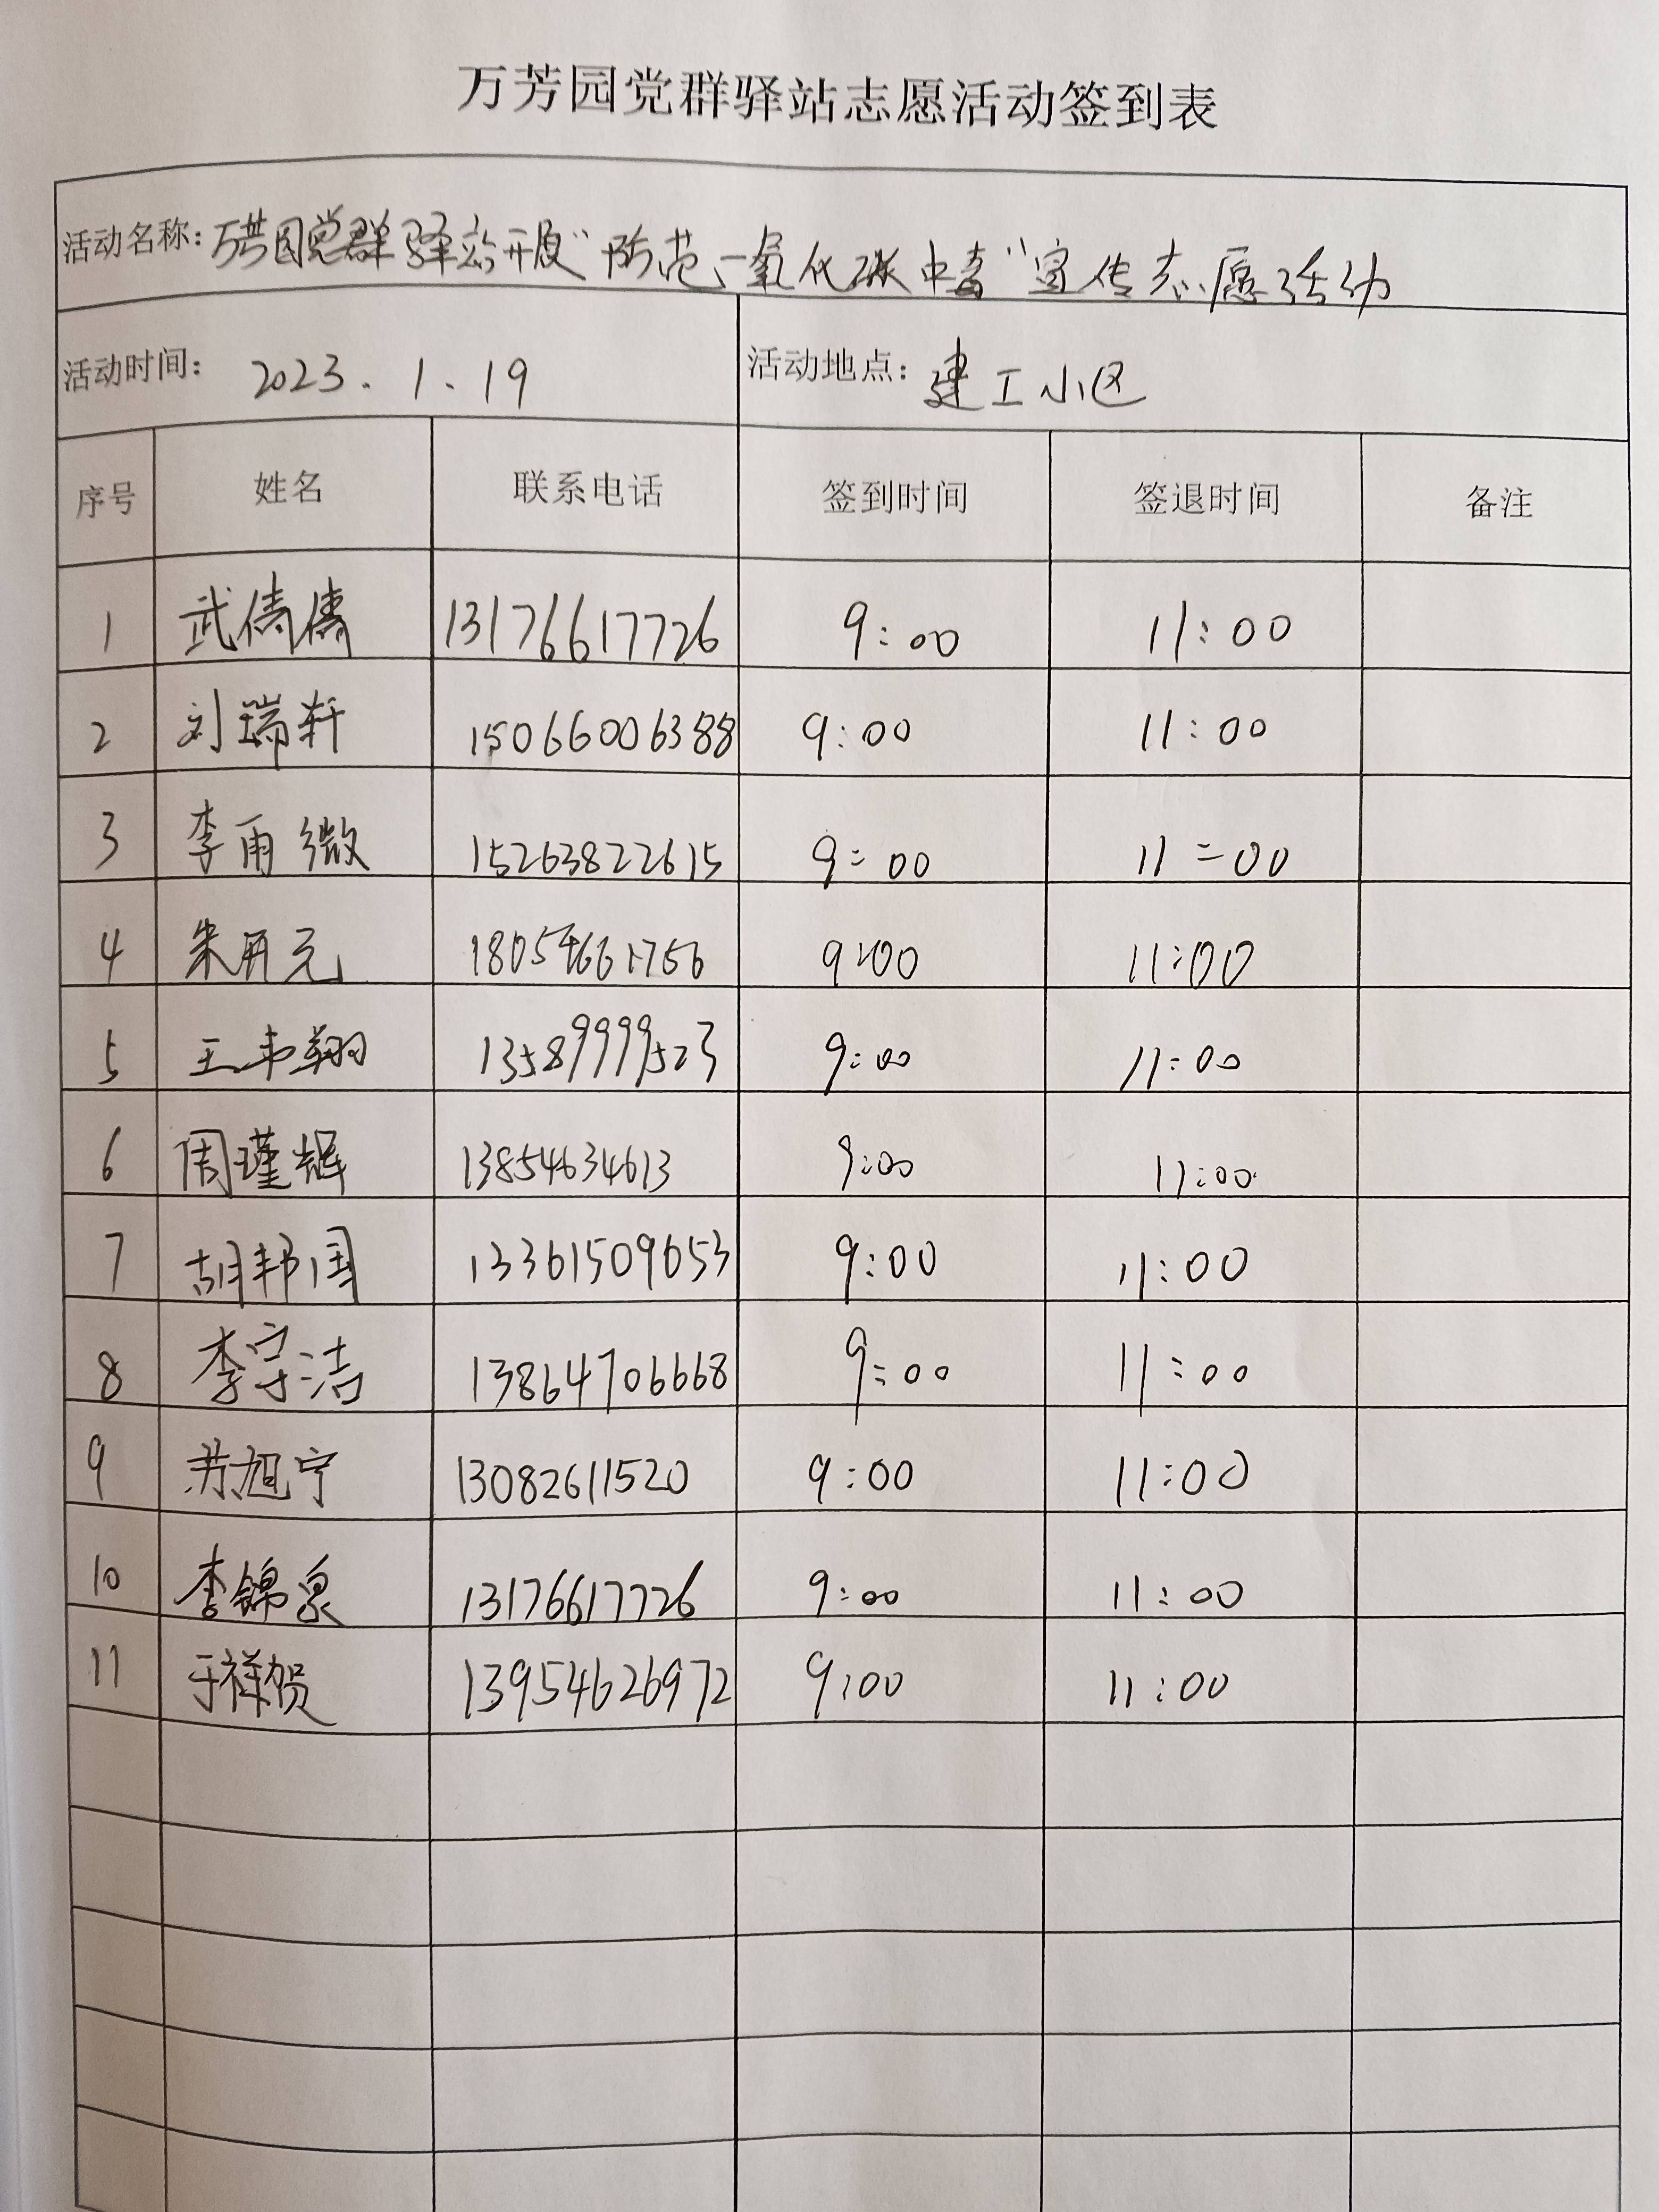 万芳园党群驿站志愿活动签到表
活动名称: 万芳园党群驿站开展"防范一氧化碳中毒"宣传志愿活动
活动时间: 2023.1.19 活动地点: 建工小区
序号 姓名 联系电话 签到时间 签退时间 备注
1 武倩倩 13176617726 9:00 11:00
2 刘瑞轩 15066006388 9:00 11:00
3 李雨微 15263822615 9:00 11:00
4 朱开元 9:00 11:00
5 王韦翔 13589999523 9:00 11:00
6 周瑾辉 13854634613 9:00 11:00
7 胡邦国 13361509653 9:00 11:00
8 李宇洁 13864706668 9:00 11:00
9 苏旭宁 13082611520 9:00 11:00
10 李锦泉 13176617726 9:00 11:00
11 于祥贺 13954626972 9:00 11:00